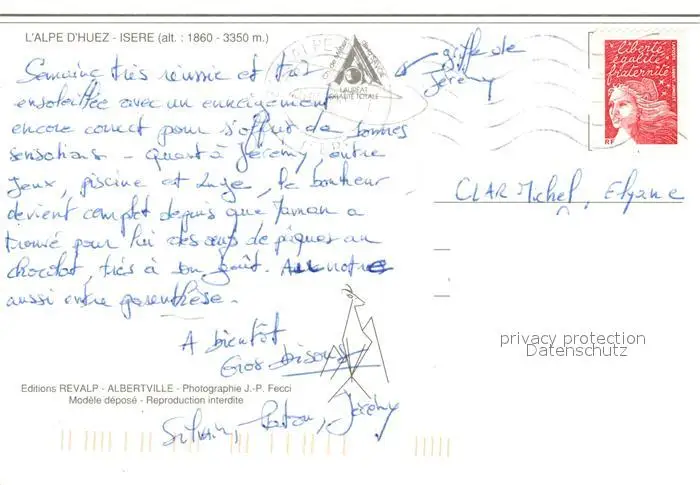 L'ALPE D'HUEZ - ISERE (alt. : 1860 - 3350 m.)
Semaine très réussie et très
ensoleillée avec un enneigement
encore correct pour s'offrir de bonnes
sensations - quant à Jérémy, entre
jeux, piscine et luge, le bonheur
devient complet depuis que Maman a
trouvé pour lui des oeufs de pâques au
chocolat, très à son goût. Au notre
aussi entre parenthèse.
A bientôt
Gros bisous
Sylvain, Jérémy
griffe de
Jérémy
LAUREAT
QUALITE TOTALE
liberté
égalité
fraternité
RF
CLAR Michel, Elyane
privacy protection
Datenschutz
Editions REVALP - ALBERTVILLE - Photographie J.-P. Fecci
Modèle déposé - Reproduction interdite